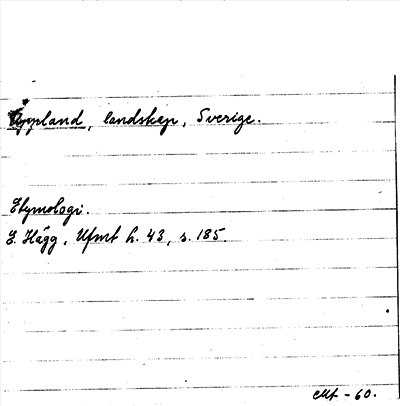 Uppland, landskap, Sverige.
Etymologi.
E. Hägg, Ufmt h. 43, s. 185.
-60.